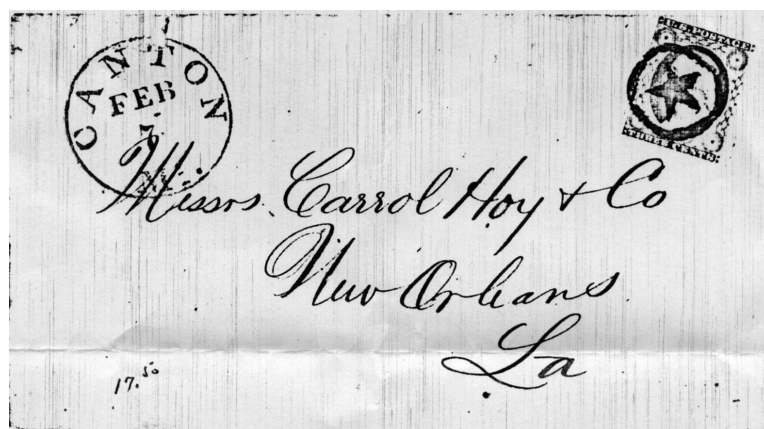 CANTON
FEB
7
U.S. POSTAGE
THREE CENTS
Messrs. Carrol Hoy & Co
New Orleans
La
17.50